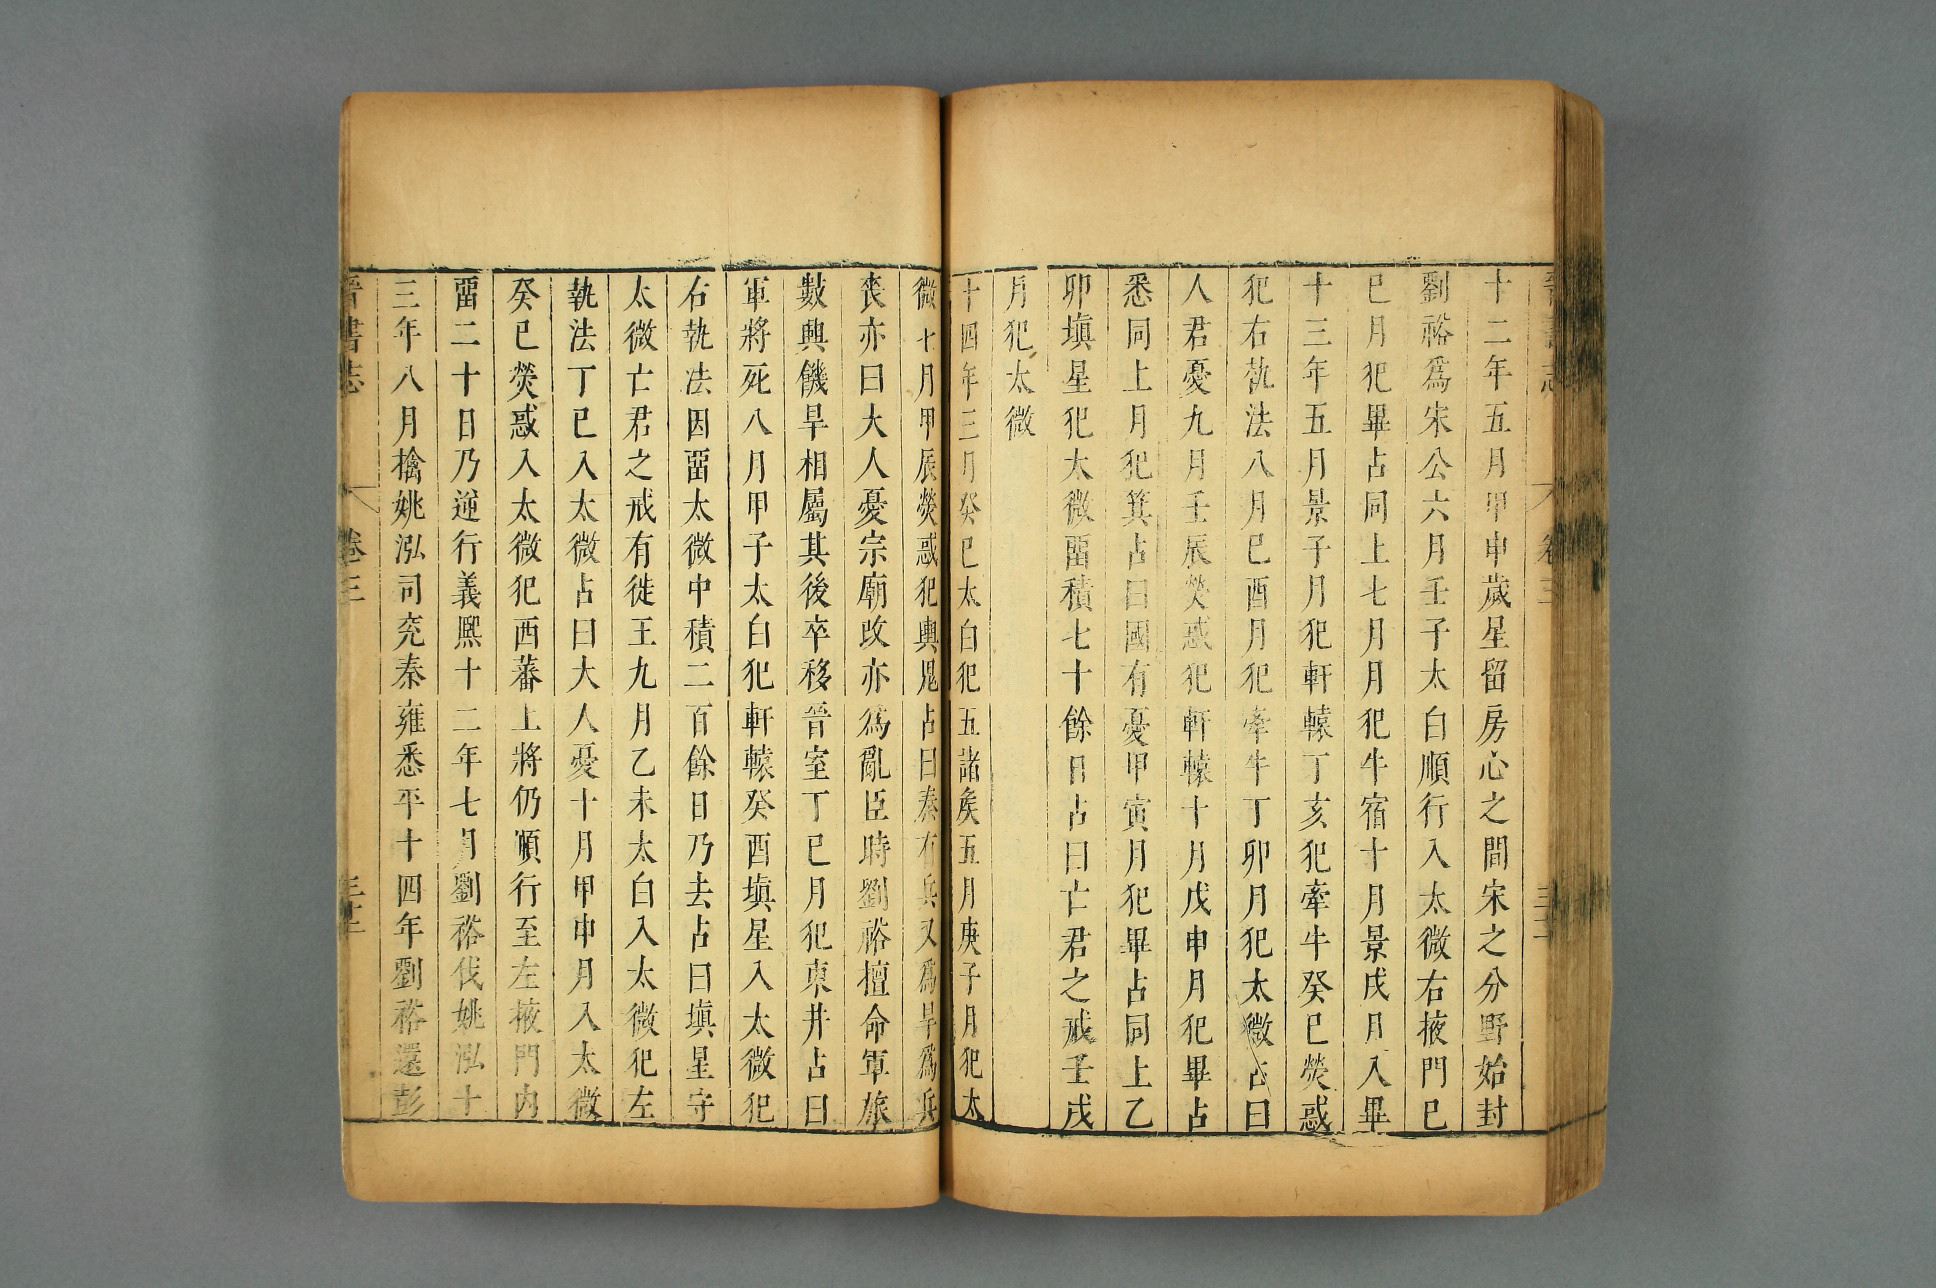 晉書志 卷三
十二年五月甲申歲星留房心之間宋之分野始封
劉裕爲宋公六月壬子太白順行入太微右掖門己
巳月犯畢占同上七月月犯牛宿十月景戌月入畢
十三年五月景子月犯軒轅丁亥犯牽牛癸巳熒惑
犯右執法八月己酉月犯牽牛丁卯月犯太微占曰
人君憂九月壬辰熒惑犯軒轅十月戊申月犯畢占
悉同上月犯箕占曰國有憂甲寅月犯畢占同上乙
卯塡星犯太微畱積七十餘日占曰亡君之戒壬戌
月犯太微
十四年三月癸巳太白犯五諸矦五月庚子月犯太
微七月甲辰熒惑犯輿鬼占曰秦有兵又爲旱爲兵
喪亦曰大人憂宗廟改亦爲亂臣時劉裕擅命軍旅
數興饑旱相屬其後卒移晉室丁巳月犯東井占曰
軍將死八月甲子太白犯軒轅癸酉塡星入太微犯
右執法因畱太微中積二百餘日乃去占曰塡星守
太微亡君之戒有徙王九月乙未太白入太微犯左
執法丁巳入太微占曰大人憂十月甲申月入太微
癸巳熒惑入太微犯西蕃上將仍順行至左掖門内
畱二十日乃逆行義熙十二年七月劉裕伐姚泓十
三年八月擒姚泓司兖秦雍悉平十四年劉裕還彭
晉書志 卷三